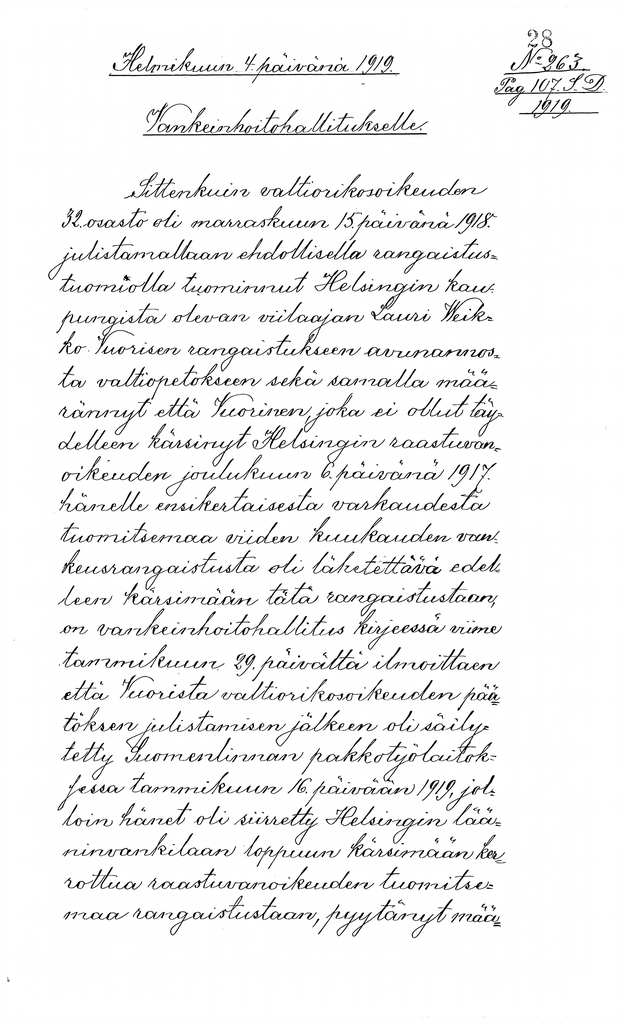 28
Helmikuun 4. päivänä 1919.
No 263.
Pag 107. S. D.
1919.
Vankeinhoitohallitukselle.
Sittenkuin valtiorikosoikeuden
32. osasto oli marraskuun 15. päivänä 1918.
julistamallaan ehdollisella rangaistus=
tuomiolla tuominnut Helsingin kau=
pungista olevan viilaajan Lauri Weik=
ko Vuorisen rangaistukseen avunannos=
ta valtiopetokseen sekä samalla mää=
rännyt että Vuorinen, joka ei ollut täy=
delleen kärsinyt Helsingin raastuvan=
oikeuden joulukuun 6. päivänä 1917.
hänelle ensikertaisesta varkaudesta
tuomitsemaa viiden kuukauden van=
keusrangaistusta oli lähetettävä edel=
leen kärsimään tätä rangaistustaan,
on vankeinhoitohallitus kirjeessä viime
tammikuun 29. päivältä ilmoittaen
että Vuorista valtiorikosoikeuden pää=
töksen julistamisen jälkeen oli säily=
tetty Suomenlinnan pakkotyölaitok=
sessa tammikuun 16. päivään 1919, jol=
loin hänet oli siirretty Helsingin lää=
ninvankilaan loppuun kärsimään ker=
rottua raastuvanoikeuden tuomitse=
maa rangaistustaan, pyytänyt mää=